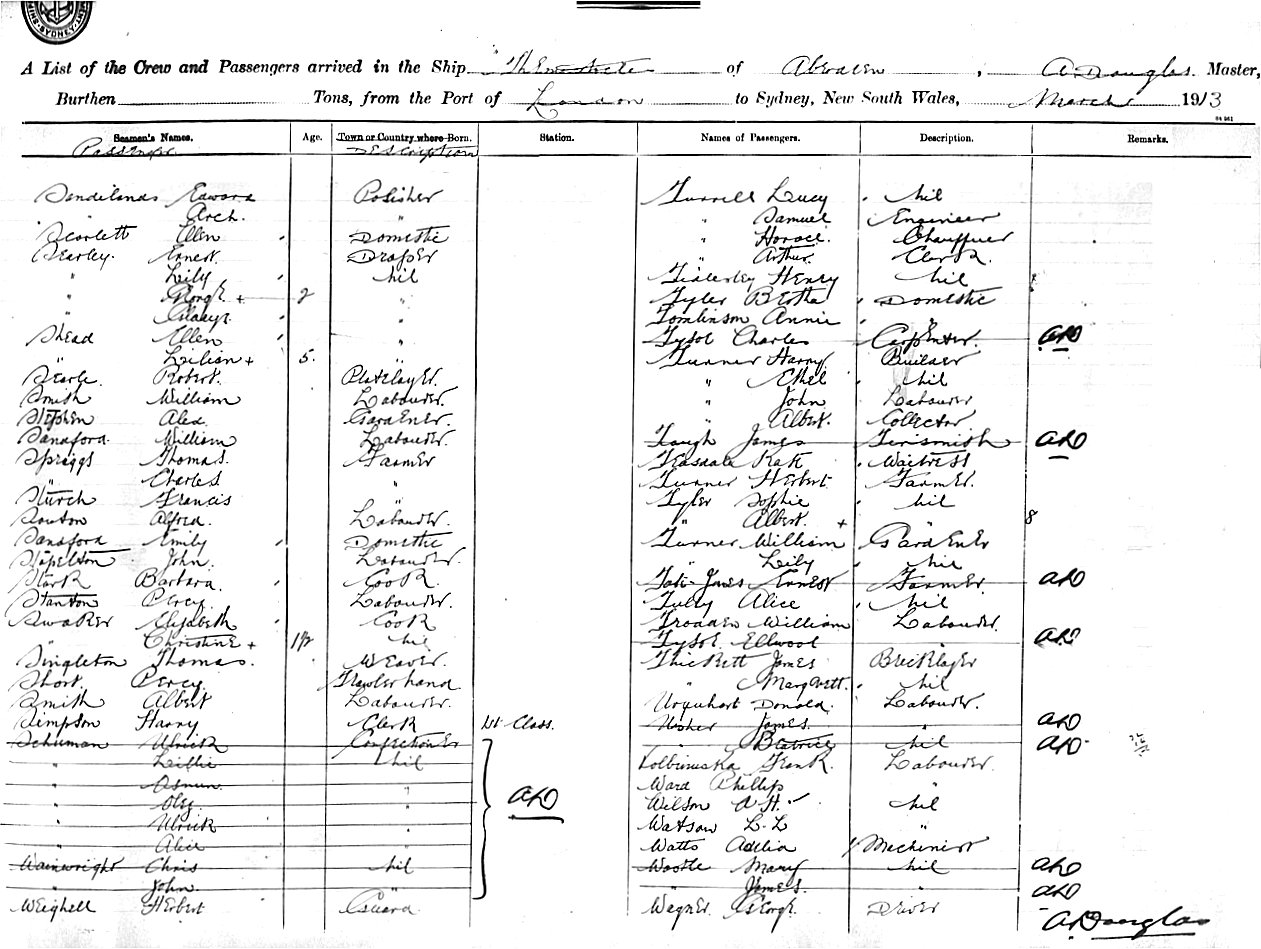 SYDNEY
A List of the Crew and Passengers arrived in the Ship of Aberdeen , A. Douglas. Master,
Burthen Tons, from the Port of London to Sydney, New South Wales, March 1913
Seamen's Names. Age. Town or Country where Born. Station. Names of Passengers. Description. Remarks.
Passengers Description
Sandilands Edward Polisher Turrell Lucy nil
" Arch. " " Samuel Engineer
Scarlett Ellen Domestic " Horace. Chauffuer
Searley. Ernest. Draper " Arthur. Clerk.
" Lily nil Henry nil
" George + 2 " Tyler Bertha Domestic
" Gladys " Tomlinson Annie "
Shead Ellen " Tysoe Charles Carpenter. AD
" Lilian + 5. " Turner Harry Builder
Searle Robert. Platelayer. " Ethel nil
Smith William Labourer. " John Labourer
Stephen Alex. Gardener. " Albert. Collector.
Sandford William Labourer. Tough James AD
Spriggs Thomas. Farmer Teasdale Kate Waitress
" Charles " Turner Herbert. Farmer.
Sturch Francis " Tyler Sophie nil
Alfred. Labourer. " Albert. + " 8
Sandford Emily Domestic Turner William Gardener
Stapelton John. Labourer. " Lily nil
Stark Barbara. Cook. Ernest Farmer AD
Stanton Percy. Labourer. Tully Alice nil
Swaker Elizabeth Cook William Labourer.
" Christine + 1½ nil Tysoe Ellwood " AD
Singleton Thomas. Weaver. Thickett James Bricklayer
Short. Percy Trawler hand " Margrett. nil
Smith Albert Labourer. Urquhart Donald. Labourer.
Simpson Harry Clerk 1st Class. Usher James. " AD
Schuman Ulrick Confectioner " Beatrice nil AD
" Lillie nil Frank. Labourer.
" " Ward Phillip "
" Oley. " AD Wilson A H. nil
" Ulrick " Watson L. L "
" Alice " Watts Adelia Mechinist
Wainwright Chris nil Mary nil AD
" John. " " James. " AD
Weighell Herbert Guard. Wagner. George. Driver
A. Douglas